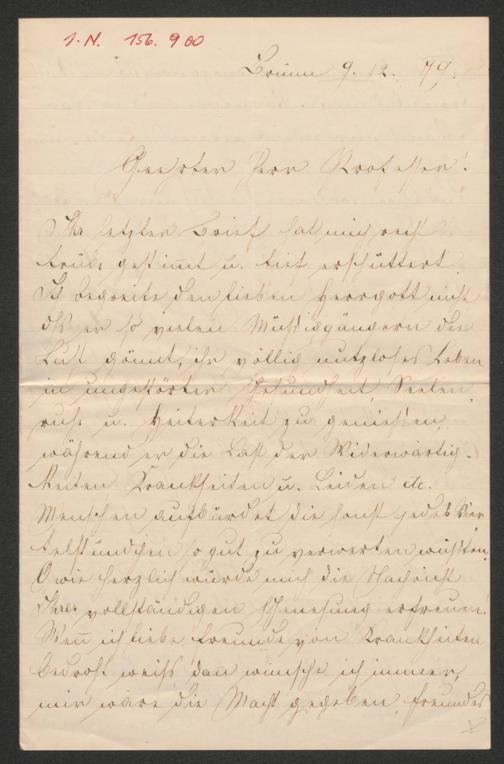 J. N. 156. 900
Brünn 9. 12. 79.
Geehrter Herr Professor!
Ihr letzter Brief hat mich recht
trübe gestimmt u. tief erschüttert.
Ich begreife den lieben Herrgott nicht
dß er so vielen Müßiggängern die
Lust gönnt, ihr völlig nutzloses Leben
in ungestörter Gesundheit, Seelen-
ruhe u. Heiterkeit zu genießen,
während er die Last der Widerwärtig-
keiten Krankheiten u. Leiden etc.
Menschen aufbürdet die sonst jedes Vier-
telstündchen so gut zu verwerten wüßten.
O wie herzlich würde mich die Nachricht
Ihrer vollständigen Genesung erfreuen!
Wen̄ ich liebe Freunde von Krankheiten
bedroht weiß, dan̄ wünsche ich immer,
mir wäre die Macht gegeben, Freundes